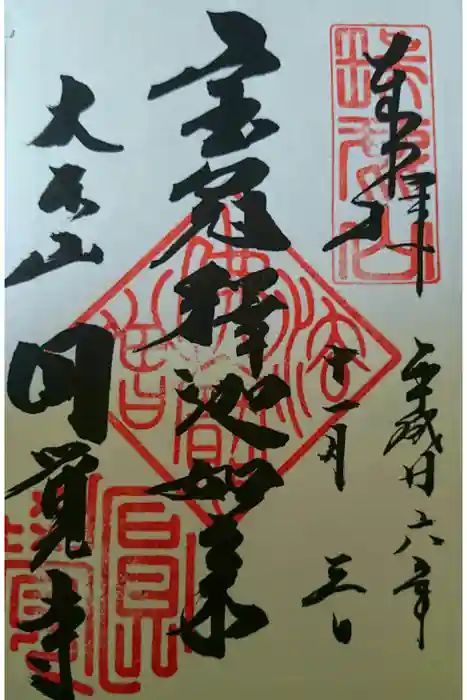 奉拝
瑞鹿山
平成廿六年
十一月三日
宝冠釋迦如来
大本山
円覚寺